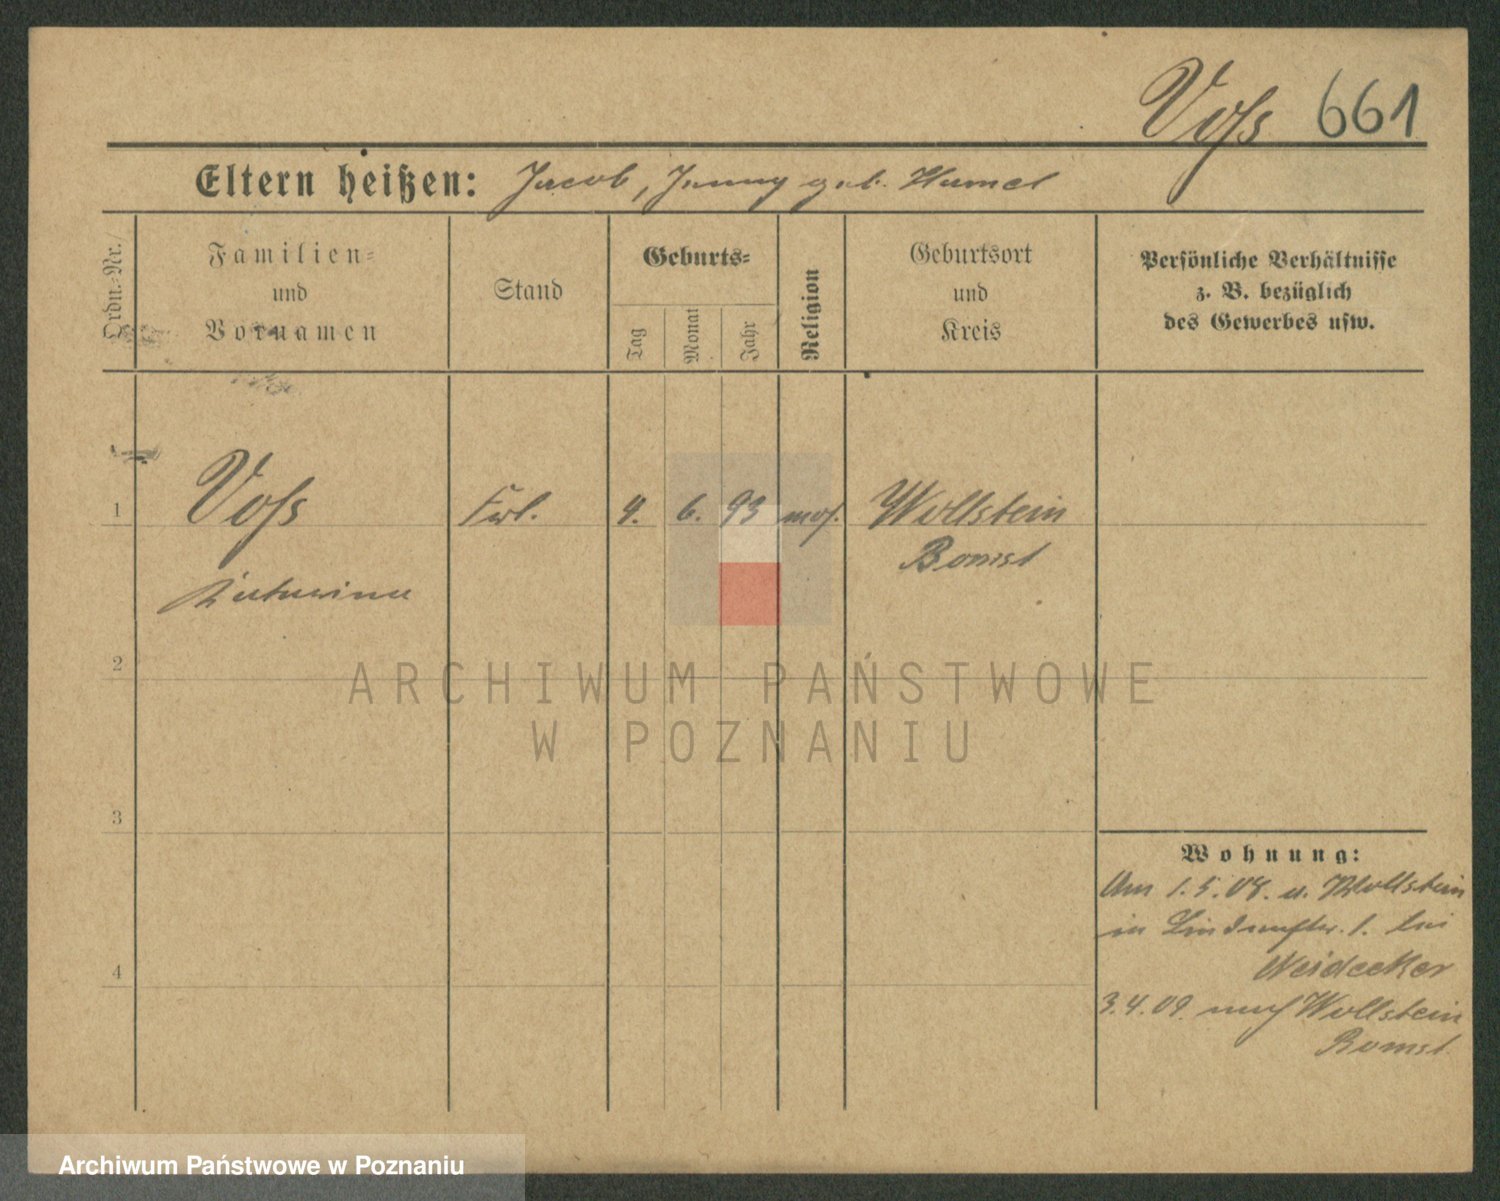 Voss 661
Eltern heißen: Jacob, Jenny geb. Hamel
Ordn.-Nr.
Familien-
und
Vornamen
Stand
Geburts-
Tag
Monat
Jahr
Religion
Geburtsort
und
Kreis
Persönliche Verhältnisse
z. B. bezüglich
des Gewerbes usw.
1 Voss Frl. 4. 6. 93 mos. Wollstein
Bomst
2
ARCHIWUM PAŃSTWOWE
W POZNANIU
3
Wohnung:
Am 1.5.08. v. Wollstein
in 1. bei
Neidecker
4
3.4.09. nach Wollstein
Bomst
Archiwum Państwowe w Poznaniu